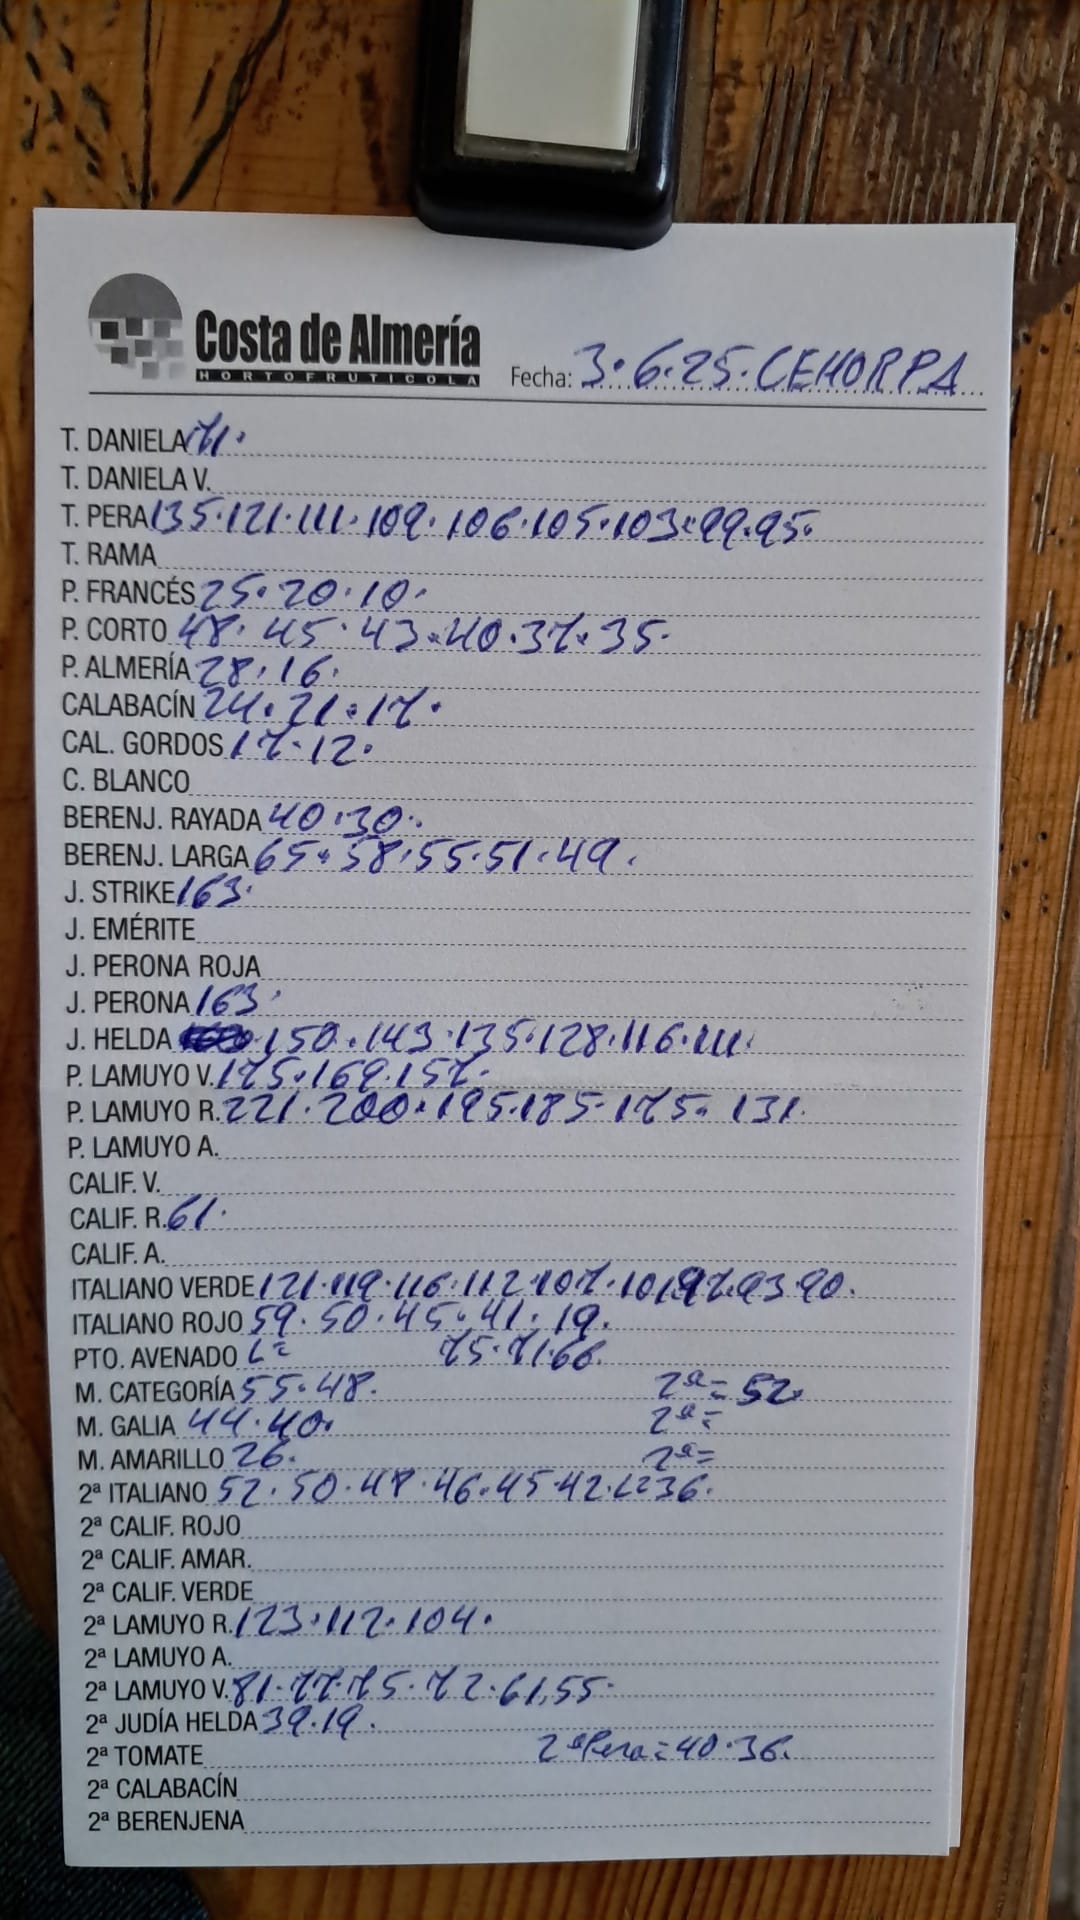 Costa de Almería
HORTOFRUTICOLA
Fecha: 3.6.25. CEHORPA
T. DANIELA 71.
T. DANIELA V.
T. PERA 135.121.111.109.106.105.103.99.95.
T. RAMA
P. FRANCÉS 25.20.10.
P. CORTO 48.45.43.40.37.35.
P. ALMERÍA 28.16.
CALABACÍN 24.21.17.
CAL. GORDOS 17.12.
C. BLANCO
BERENJ. RAYADA 40.30.
BERENJ. LARGA 65.58.55.51.49.
J. STRIKE 163.
J. EMÉRITE
J. PERONA ROJA
J. PERONA 163.
J. HELDA 150.143.135.128.116.111.
P. LAMUYO V. 175.169.157.
P. LAMUYO R. 221.200.195.185.175.131.
P. LAMUYO A.
CALIF. V.
CALIF. R. 61.
CALIF. A.
ITALIANO VERDE 121.119.116.112.107.101.97.93.90.
ITALIANO ROJO 59.50.45.41.19.
PTO. AVENADO 75.71.66.
M. CATEGORÍA 55.48. 2ª= 52.
M. GALIA 44.40. 2ª=
M. AMARILLO 26. 2ª=
2ª ITALIANO 52.50.48.46.45.42. 36.
2ª CALIF. ROJO
2ª CALIF. AMAR.
2ª CALIF. VERDE
2ª LAMUYO R. 123.112.104.
2ª LAMUYO A.
2ª LAMUYO V. 81.77.75.72.61.55.
2ª JUDÍA HELDA 39.19.
2ª TOMATE 2ª Pera = 40.36.
2ª CALABACÍN
2ª BERENJENA